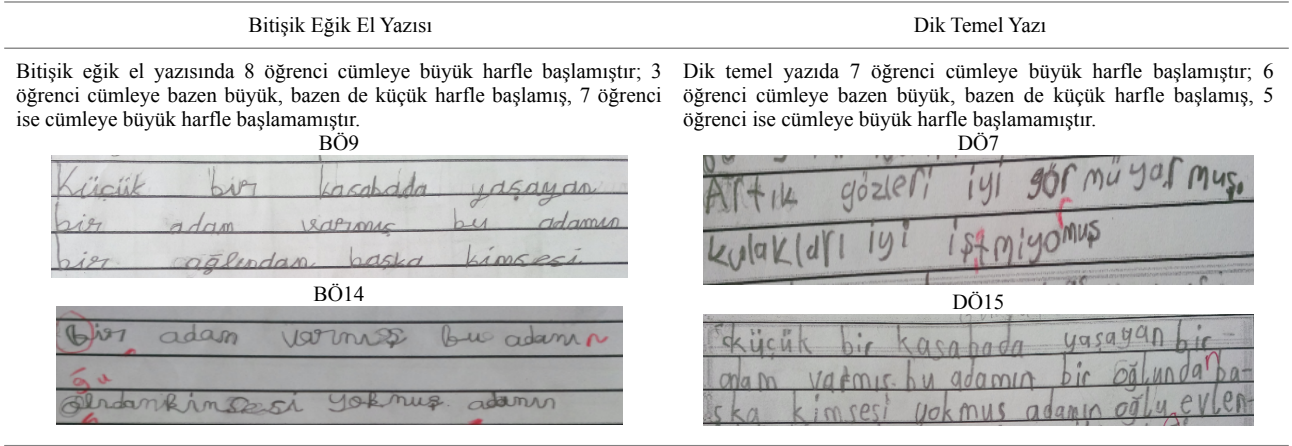 Bitişik Eğik El Yazısı
Dik Temel Yazı
Bitişik eğik el yazısında 8 öğrenci cümleye büyük harfle başlamıştır; 3
öğrenci cümleye bazen büyük, bazen de küçük harfle başlamış, 7 öğrenci
ise cümleye büyük harfle başlamamıştır.
BÖ9
Küçük bir kasabada yaşayan
bir adam varmış bu adamın
bir oğlundan başka kimsesi
BÖ14
Bir adam varmış bu adamın
yokmuş. adamın
Dik temel yazıda 7 öğrenci cümleye büyük harfle başlamıştır; 6
öğrenci cümleye bazen büyük, bazen de küçük harfle başlamış, 5
öğrenci ise cümleye büyük harfle başlamamıştır.
DÖ7
Artık gözleri iyi görmüyormuş.
kulakları iyi
DÖ15
küçük bir kasabada yaşayan bir
adam varmış. bu adamın bir oğlundan ba-
şka kimsesi yokmuş adamın oğlu evlen-